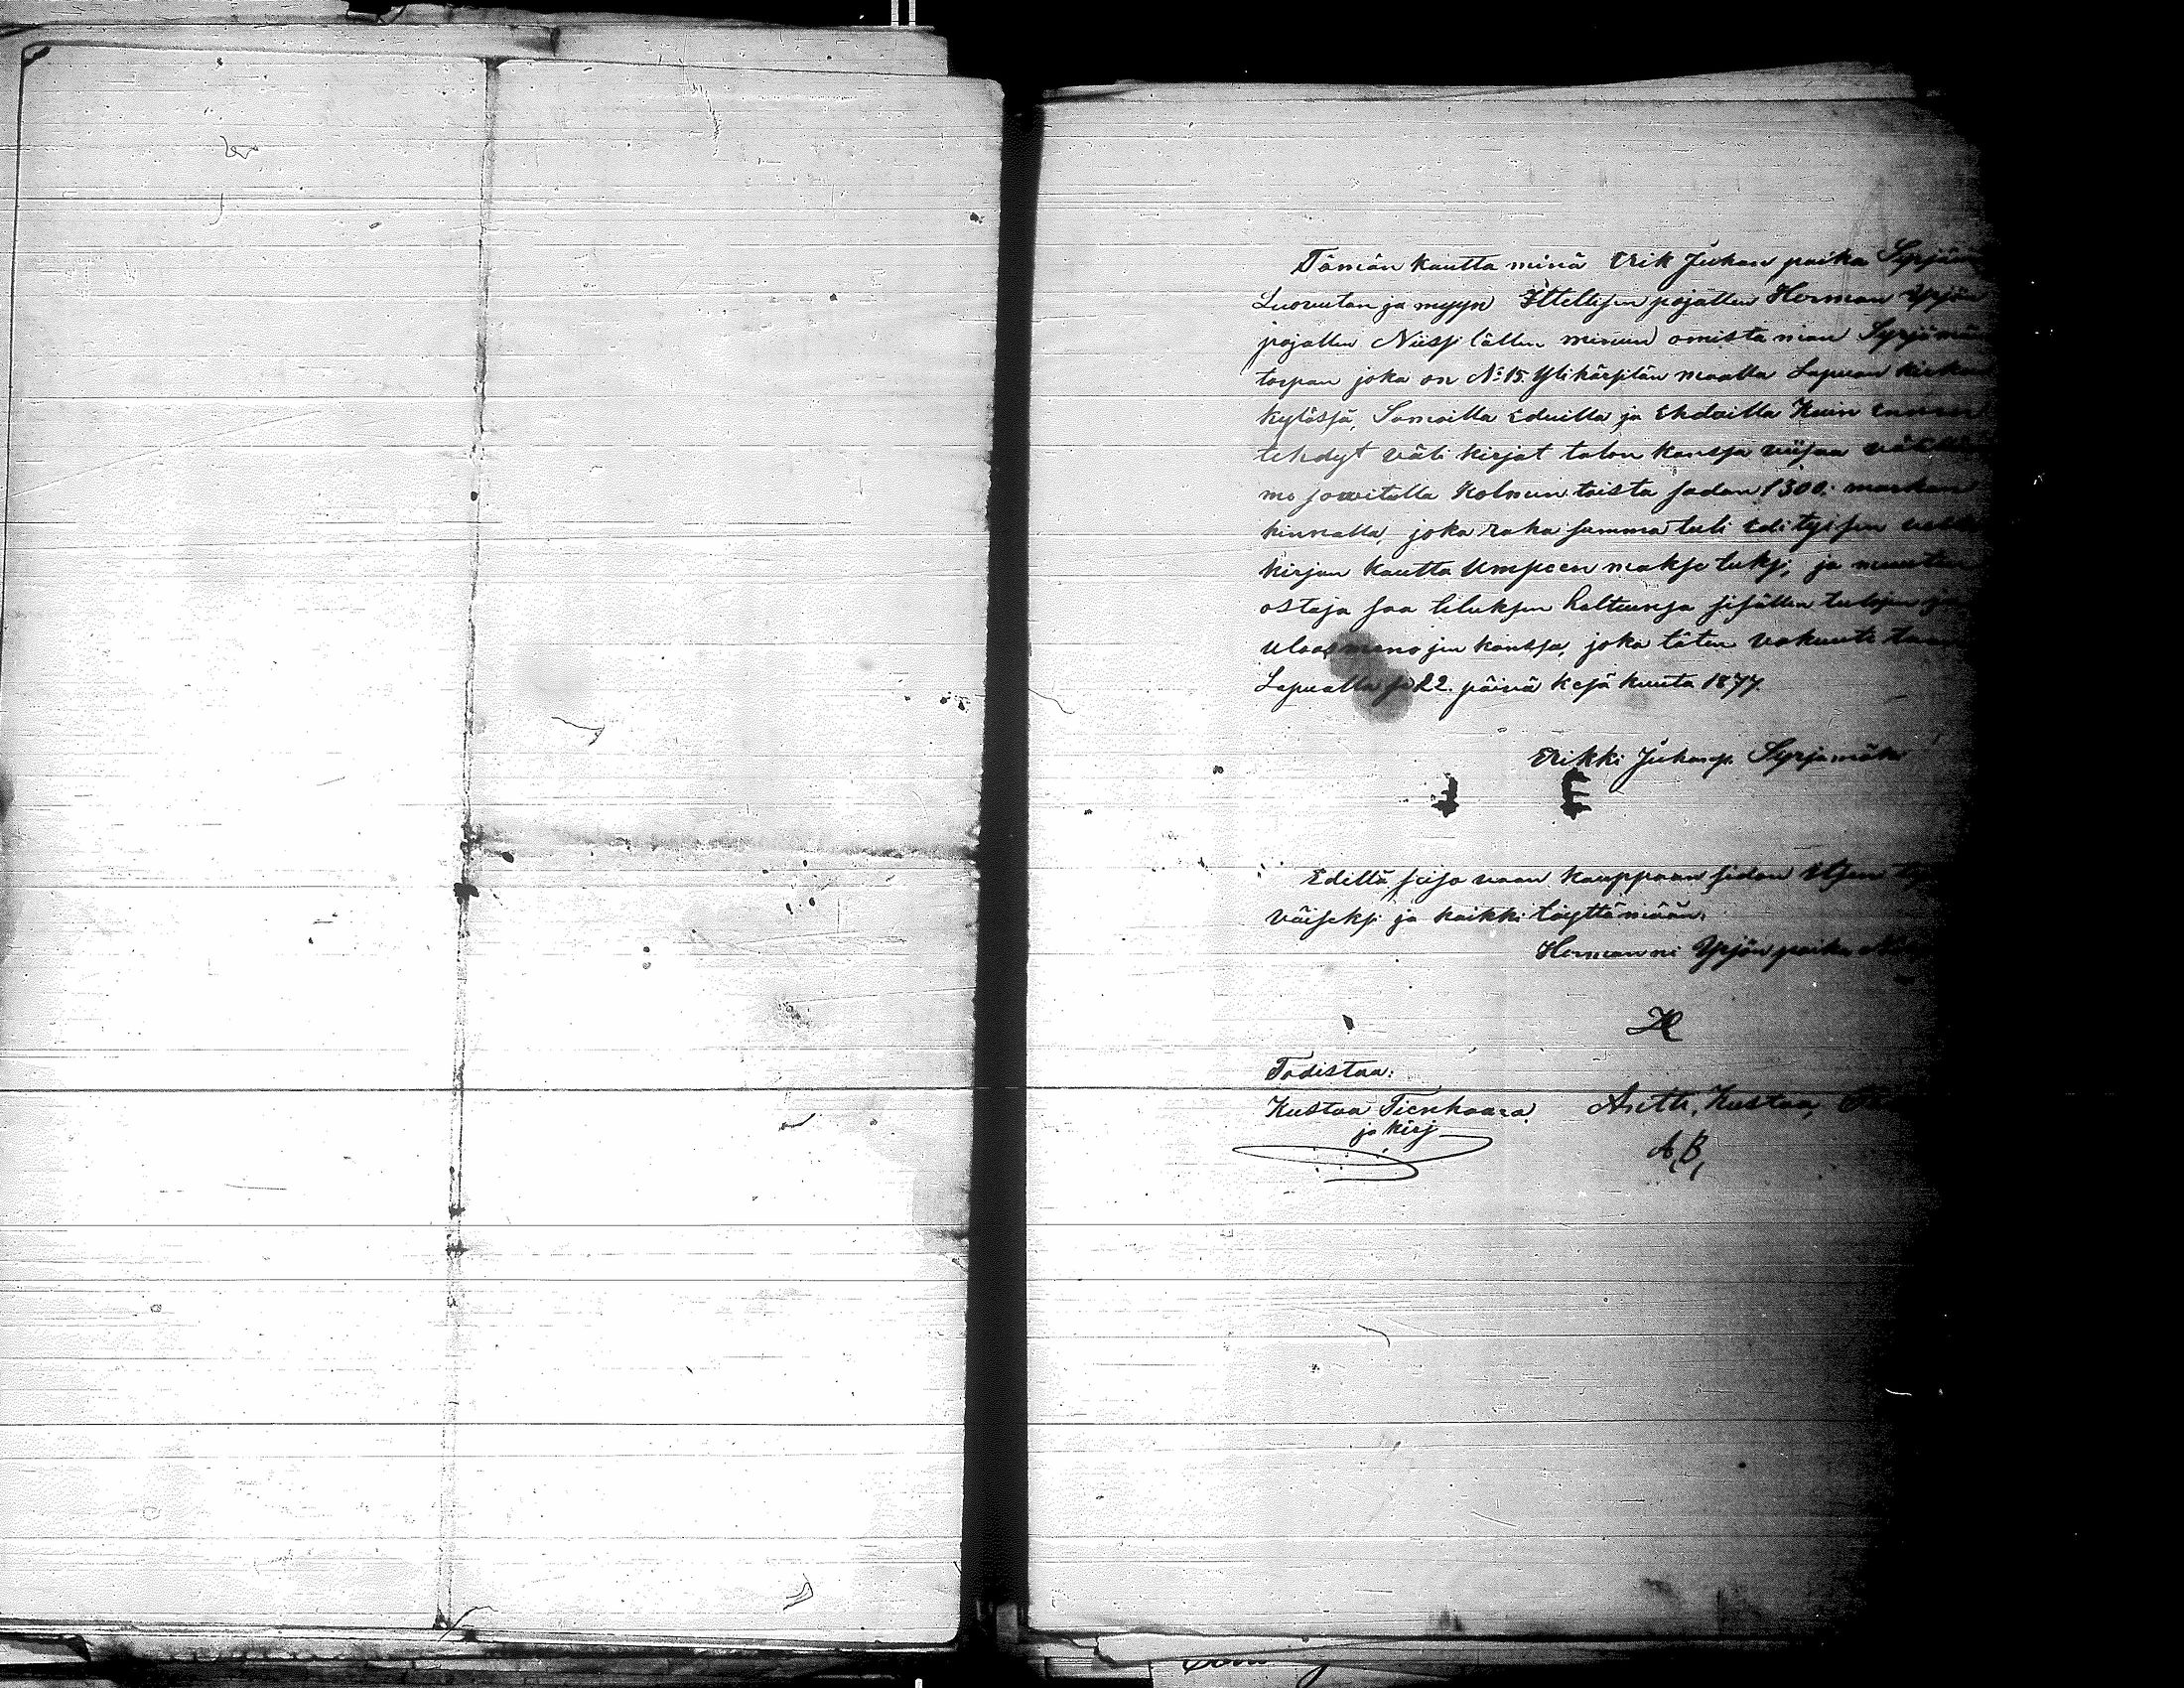 Tämän kautta minä Erik Juhan poika Syrjämä
Luovutan ja myyn Ittellisen pojallen Herman Yrjön
pojallen Niissi lällen minun omista man Syrjämän
torpan joka on No 15. Ylikärpilän maalla Lapuan kirkon
kylässä, Samoilla Eduilla ja Ehdoilla Kuin ennen
tehdyt väli kirjat talon kanssa viisaa
mo sowitulla Kolmen toista sadan 1300. markan
hinnalla, joka raha summa tuli Edityisen
kirjan kautta Umpeen makse tuksi, ja muutten
ostaja saa tiluksen haltuunsa sisällen tulojen ja
uloas meno jen kanssa, joka täten vakuute taan
Lapualla ja 22. päivä kesä kuuta 1877.
Erikki Juhanp. Syrjamäki
J E
Edellä seiso vaan kauppaan sidon Itseni
väiseksi ja kaikki täyttämään.
Hermanni Yrjön poika
H
Todistaa:
Kustaa Tienhaara, Antti, Kustaa,
ja kirj
A, B,